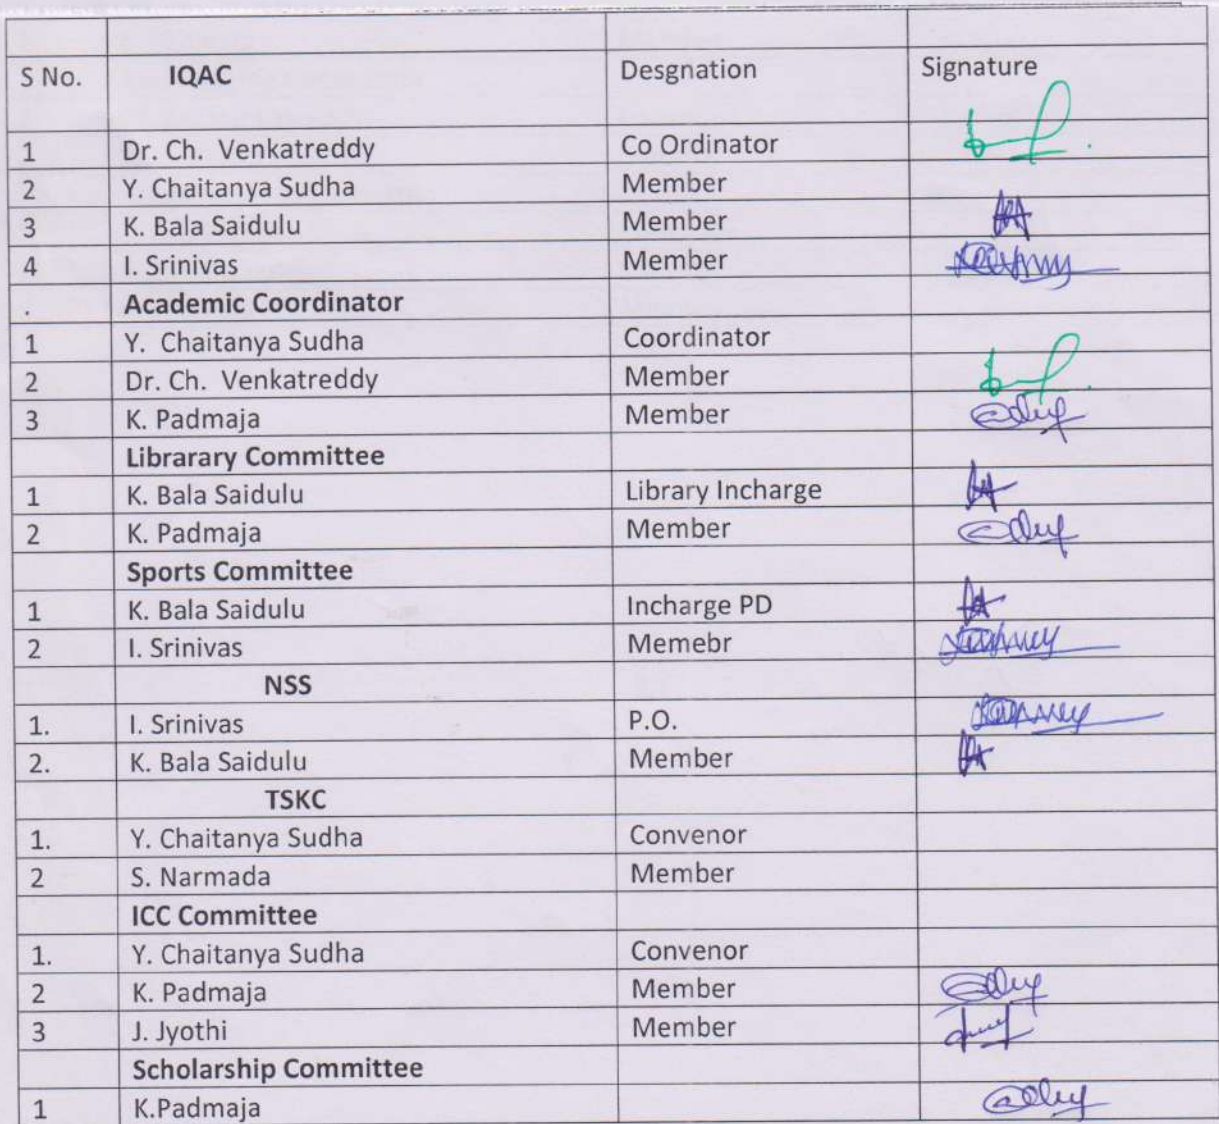 S No. IQAC Desgnation Signature
1 Dr. Ch. Venkatreddy Co Ordinator
2 Y. Chaitanya Sudha Member
3 K. Bala Saidulu Member
4 I. Srinivas Member
. Academic Coordinator
1 Y. Chaitanya Sudha Coordinator
2 Dr. Ch. Venkatreddy Member
3 K. Padmaja Member
Librarary Committee
1 K. Bala Saidulu Library Incharge
2 K. Padmaja Member
Sports Committee
1 K. Bala Saidulu Incharge PD
2 I. Srinivas Memebr
NSS
1. I. Srinivas P.O.
2. K. Bala Saidulu Member
TSKC
1. Y. Chaitanya Sudha Convenor
2 S. Narmada Member
ICC Committee
1. Y. Chaitanya Sudha Convenor
2 K. Padmaja Member
3 J. Jyothi Member
Scholarship Committee
1 K.Padmaja